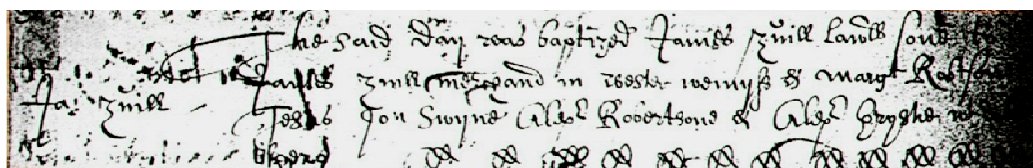 The said day was baptized James zuill lawll sone to
James zuill merchand in wester wemyss & Margt Robtson
Ja: zuill
testes Jon Swyne Alexr Robertsone & Alexr